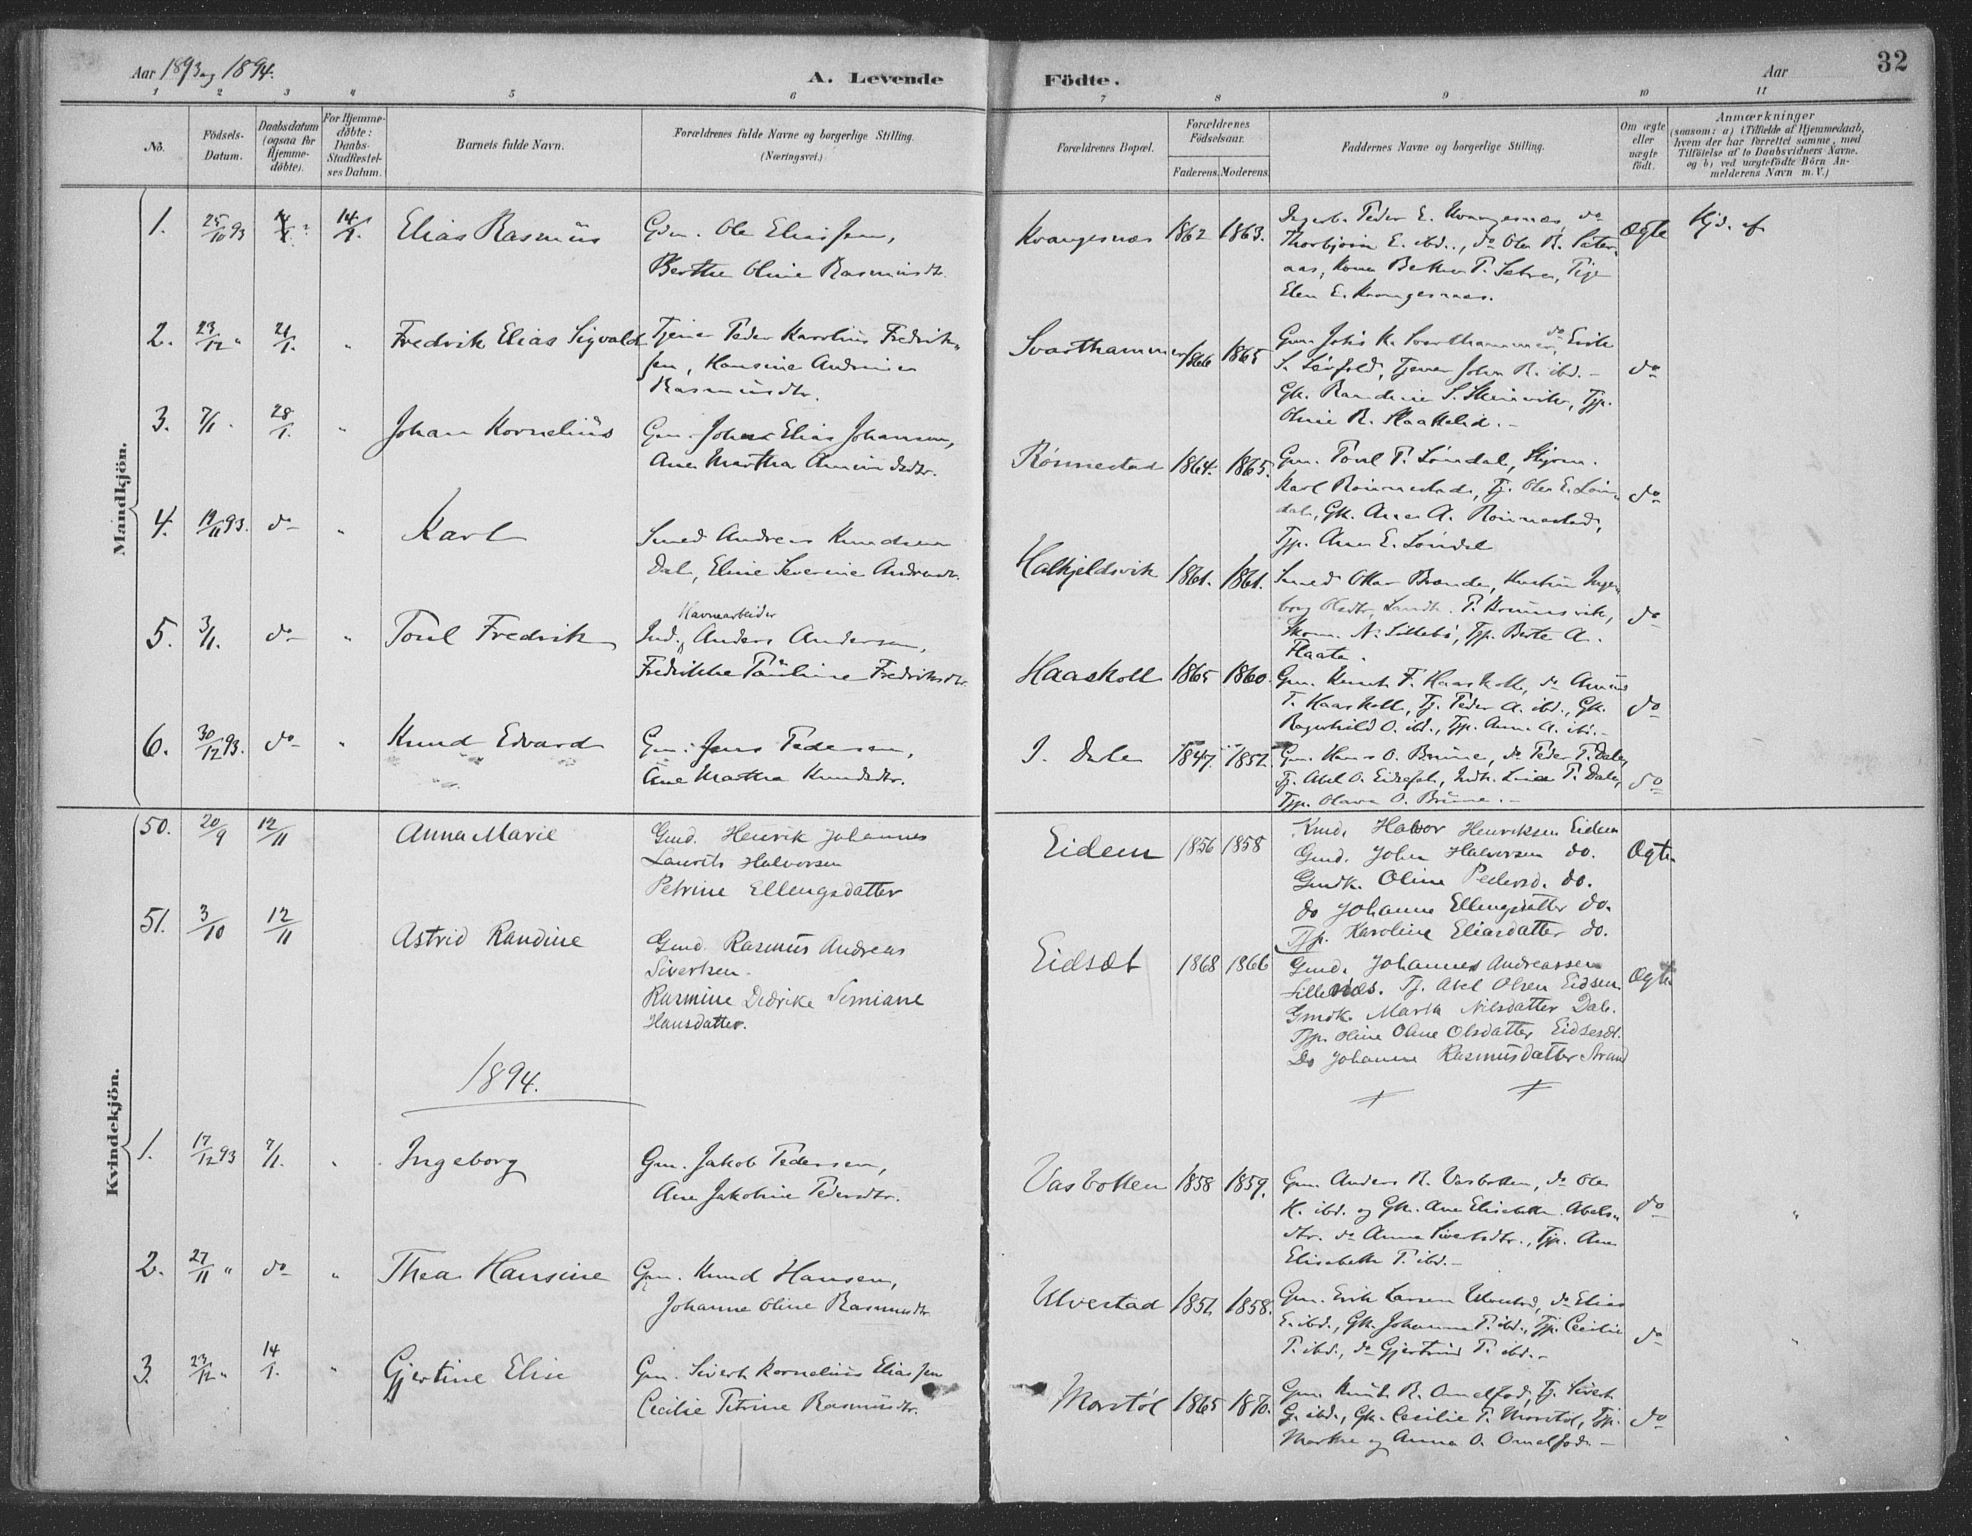 Aar 1893 og 1894.
A. Levende
Födte.
Aar
32
1 2 3 4 5 6 7 8 9 10 11
No.
Födsels-Datum.
Daabsdatum (ogsaa for Hjemmedöbte).
For Hjemmedöbte: Daabs-Stadfæstelses Datum.
Barnets fulde Navn.
Forældrenes fulde Navne og borgerlige Stilling. (Næringsvei.)
Forældrenes Bopæl.
Forældrenes Födselsaar.
Faderens. Moderens.
Faddernes Navne og borgerlige Stilling.
Om ægte eller uægte födt.
Anmærkninger
(saasom: a) i Tilfælde af Hjemmedaab, hvem der har forrettet samme, med Tilföielse af to Daabsvidners Navne. og b) ved uægtefödte Börn Anmelderens Navn m. V.)
Mandkjön.
1. 25/10 93 14/1. Elias Rasmüs
Gdm. Ole Eliassen,
Berthe Oline Rasmusdtr.
Kvangesnæs 1862 1863.
Thorbjörn E. ibd.,
Elen E. Kvangesnæs.
Ægte
Hjd. af
2. 23/12 " 21/1. " Fredrik Elias Sigvald
Tjener Peder Karolius Fredrik-
sen, Hansine Andrine
Rasmusdtr.
Svarthammer 1866 1865
Gm. Johs K. Svarthammer, do Erik
S. Løvfold, Tjener Johan R. ibd. -
Gk. Randine S. Steinvik, Tjp.
Oline R. Flaakelid. -
do
3. 7/1. 28/1. " Johan Kornelius
Gm. Johan Elias Johansen,
Ane Martha Amundsdtr.
Rönnestad 1864. 1865.
Gm. Poul P. Løndal,
Karl Rönnestad, Tj. Ole E. Løn-
dal, Gk. Anne A. Rönnestad,
Tjp. Ane E. Løndal
do
4. 19/11 93. do " Karl
Smed Andreas Knudsen
Dal, Eline Severine Andrsdtr.
Halkjeldsvik 1861. 1861.
Smed Ottar Brande, Hustru Inge-
borg Olsdtr,
N. Lillebö, Tjp. Berte A.
Flaate.
do
5. 3/1. do " Poul Fredrik
Havnearbeider
Ind., Anders Andersen,
Fredrikke Pauline Fredriksdtr.
Haaskoll 1865 1860.
Gm. Knut F. Haaskoll, do Amund
T. Haaskoll, Tj. Peder A. ibd., Gk.
Ragnhild O. ibd., Tjp. Anne A. ibd. -
do
6. 30/12 93. do " Knud Edvard
Gm. Jens Pedersen,
Ane Martha Knudsdtr.
I. Dale 1847. 1852.
Gm. Hans O. Brüne, do Peder T. Dale,
Tj. Abel O. Eidset, Indk. Lina P. Dale,
Tjp. Olava O. Brüne. -
do
Kvindekjön.
50. 20/9 12/11 Anna Marie
Gmd. Henrik Johannes
Laurits Halvorsen
Petrine Ellengsdatter
Eidem 1856 1858
Halvor Henriksen Eidem
Gmd. Johan Halvorsen do.
Gmdk. Oline Pedersd. do.
do Johanne Ellengsdatter do.
Tjp. Karoline Eliasdatter do.
Ægte
51. 3/10 12/11 Astrid Randine
Gmd. Rasmus Andreas
Sivertsen.
Rasmine Didrike Semiane
Hansdatter.
Eidsæt 1868 1866
Gmd. Johannes Andreassen
Lillenæs. Tj. Abel Olsen Eidsem
Gmdk. Marta Nilsdatter Dale.
Tjp. Oline Olave Olsdatter Eidseset.
Do Johanne Rasmusdatter Strand
Ægte
1894.
1. 17/12 93 7/1. " Ingeborg
Gm. Jakob Pedersen,
Ane Jakobine Pedersdtr.
Vasbotten 1858 1859.
Gm. Anders R. Vasbotten, do Ole
K. ibd. og Gk. Ane Elisabeth Abels-
dtr. do Anne Sivertsdtr., Tjp. Ane
Elisabeth T. ibd. -
do "
2. 27/11 " do " Thea Hansine
Gm. Knud Hansen,
Johanne Oline Rasmusdtr.
Ulvestad 1852 1858.
Gm. Erik Larsen Ulvestad, do Elias
E. ibd., Gk. Johanne T. ibd., Tjp. Cecilie
P. ibd., do Gjertrud T. ibd. -
do "
3. 23/12 " 14/1. " Gjertine Elise
Gm. Sivert Kornelius Eliassen
Cecilie Petrine Rasmusdtr.
Morstöl 1865 1870.
Gm. Knut R. Omelfod, Tj. Sivert
G. ibd., Gk. Cecilie P. Morstöl, Tjp.
Marthe og Anna O. Omelfod. -
do "